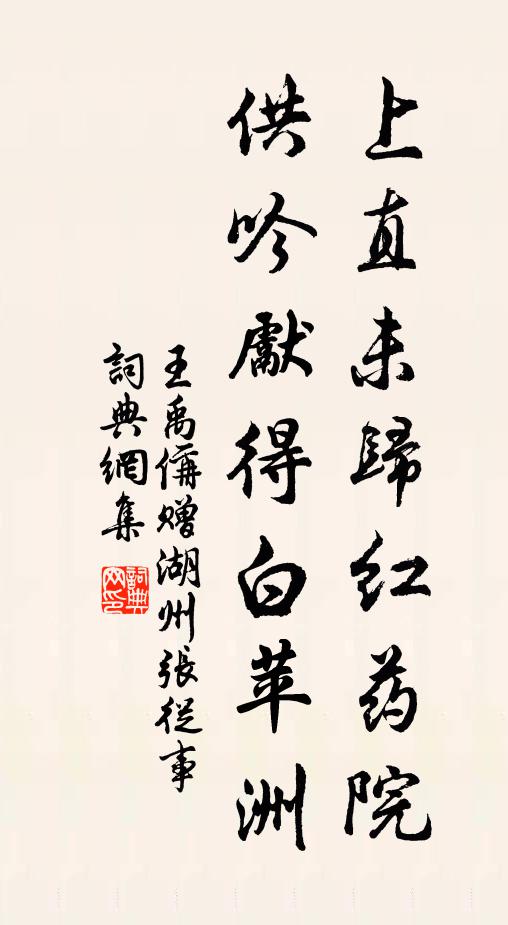 上直未歸红药院
供吟獻得白苹洲
王禹偁赠湖州張從事
詞典網集
詞典网印